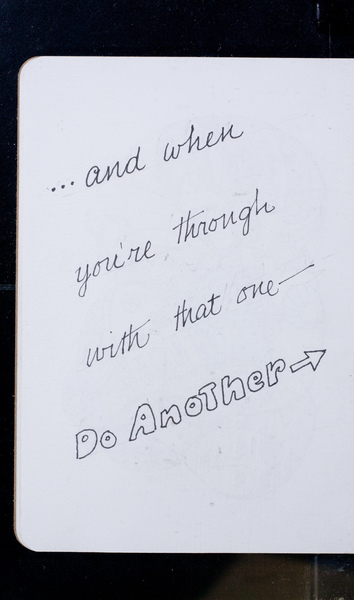 ...and when
you're through
with that one—
Do AnoTher→